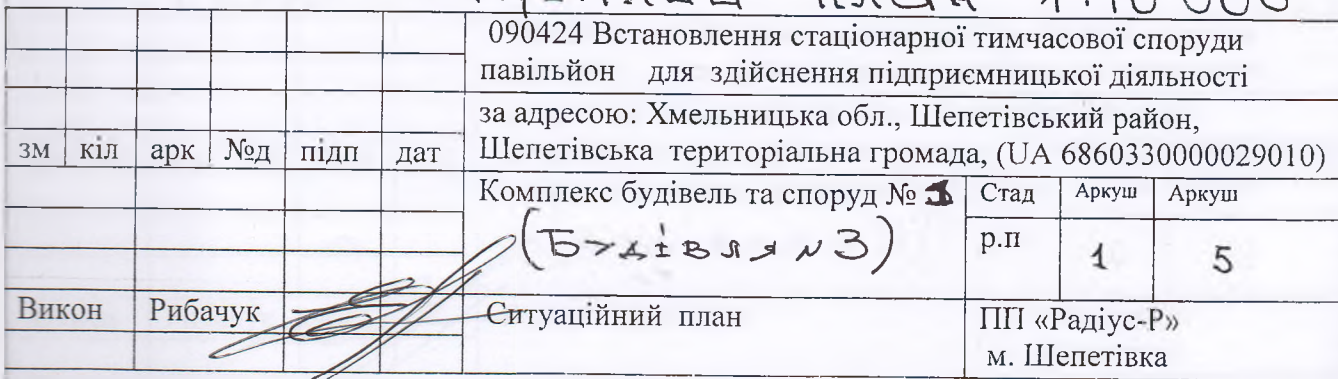 090424 Встановлення стаціонарної тимчасової споруди
павільйон для здійснення підприємницької діяльності
за адресою: Хмельницька обл., Шепетівський район,
Шепетівська територіальна громада, (UA 6860330000029010)
зм кіл арк №д підп дат
Комплекс будівель та споруд № 1
(Будівля №3)
Стад Аркуш Аркуш
р.п 1 5
Викон Рибачук
Ситуаційний план
ПП «Радіус-Р»
м. Шепетівка